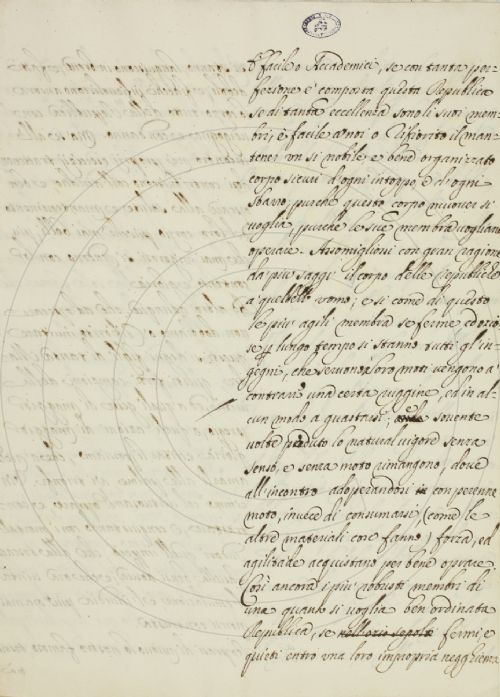 È facile o Accademici, se con tanta per-
fezione è composta questa Republica
se di tanta eccellenza sono li suoi mem-
bri, è facile a noi o Rifiorito il man-
tener un si nobile, e bene organizato
corpo sicuri d'ogni intoppo, e d'ogni
sbavo, purche questo corpo muover si
voglia, purche le sue membra vogliano
operare. Assomigliono con gran ragione
da più saggi il corpo delle Republiche
a quello dell' uomo; e si come di questo
le più agili membra se ferme, ed ozio
se p lungo tempo si stanno tutti gl' in-
gegni, che servono a loro moti vengono a
contrarre una certa ruggine, ed in al-
cun modo a guastarsi; e sovente
volte perduto lo natural vigore senza
senso, e senza moto rimangono, dove
all' incontro adoperandosi in con perenne
moto, invece di consumarsi, (come le
altre materiali cose fanno) forza, ed
agilità acquistano per bene oprare.
Così ancora i più robusti membri di
una quanto si voglia ben ordinata
Republica, se nell ozio sepolti fermi, e
quieti entro una loro impropria negghienza